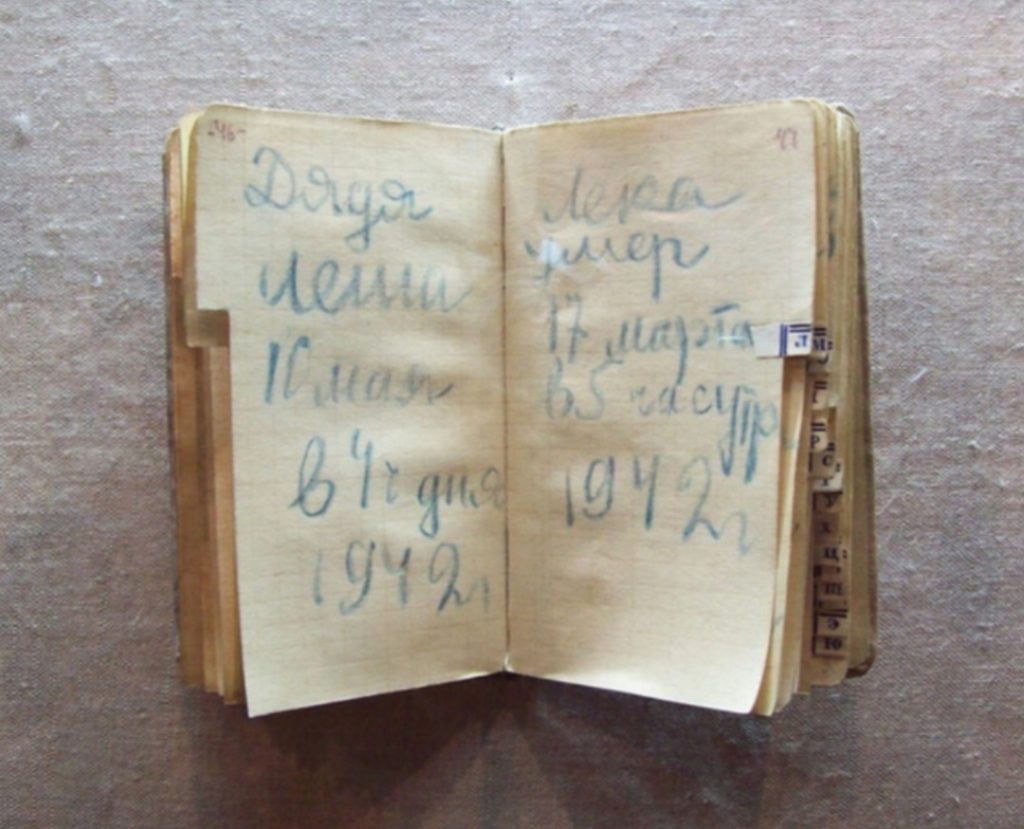 46
Дядя
Леша
10 мая
в 4 ч дня
1942 г
47
Лека
умер
17 марта
в 5 час утр
1942 г
Л
М
Р
С
Т
У
Х
Ц
Ш
Э
Ю